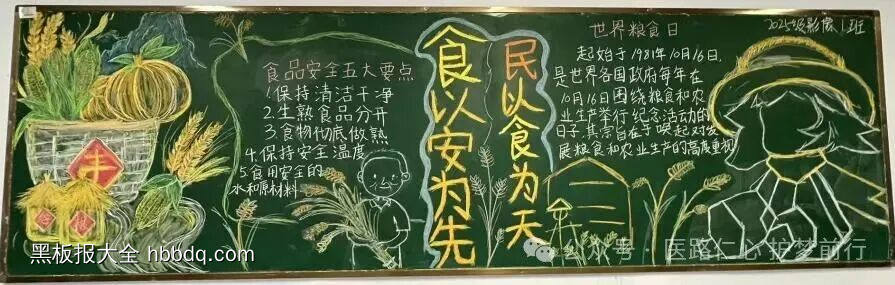 食品安全五大要点
1.保持清洁干净
2.生熟食品分开
3.食物彻底做熟
4.保持安全温度
5.食用安全的
水和原材料
丰
食以安为先
民以食为天
世界粮食日
起始于1981年10月16日,
是世界各国政府每年在
10月16日围绕粮食和农
业生产举行纪念活动的
日子,其宗旨在于唤起对发
展粮食和农业生产的高度重视
2025级影像1班
黑板报大全 hbbdq.com
公众号·医路仁心护梦前行